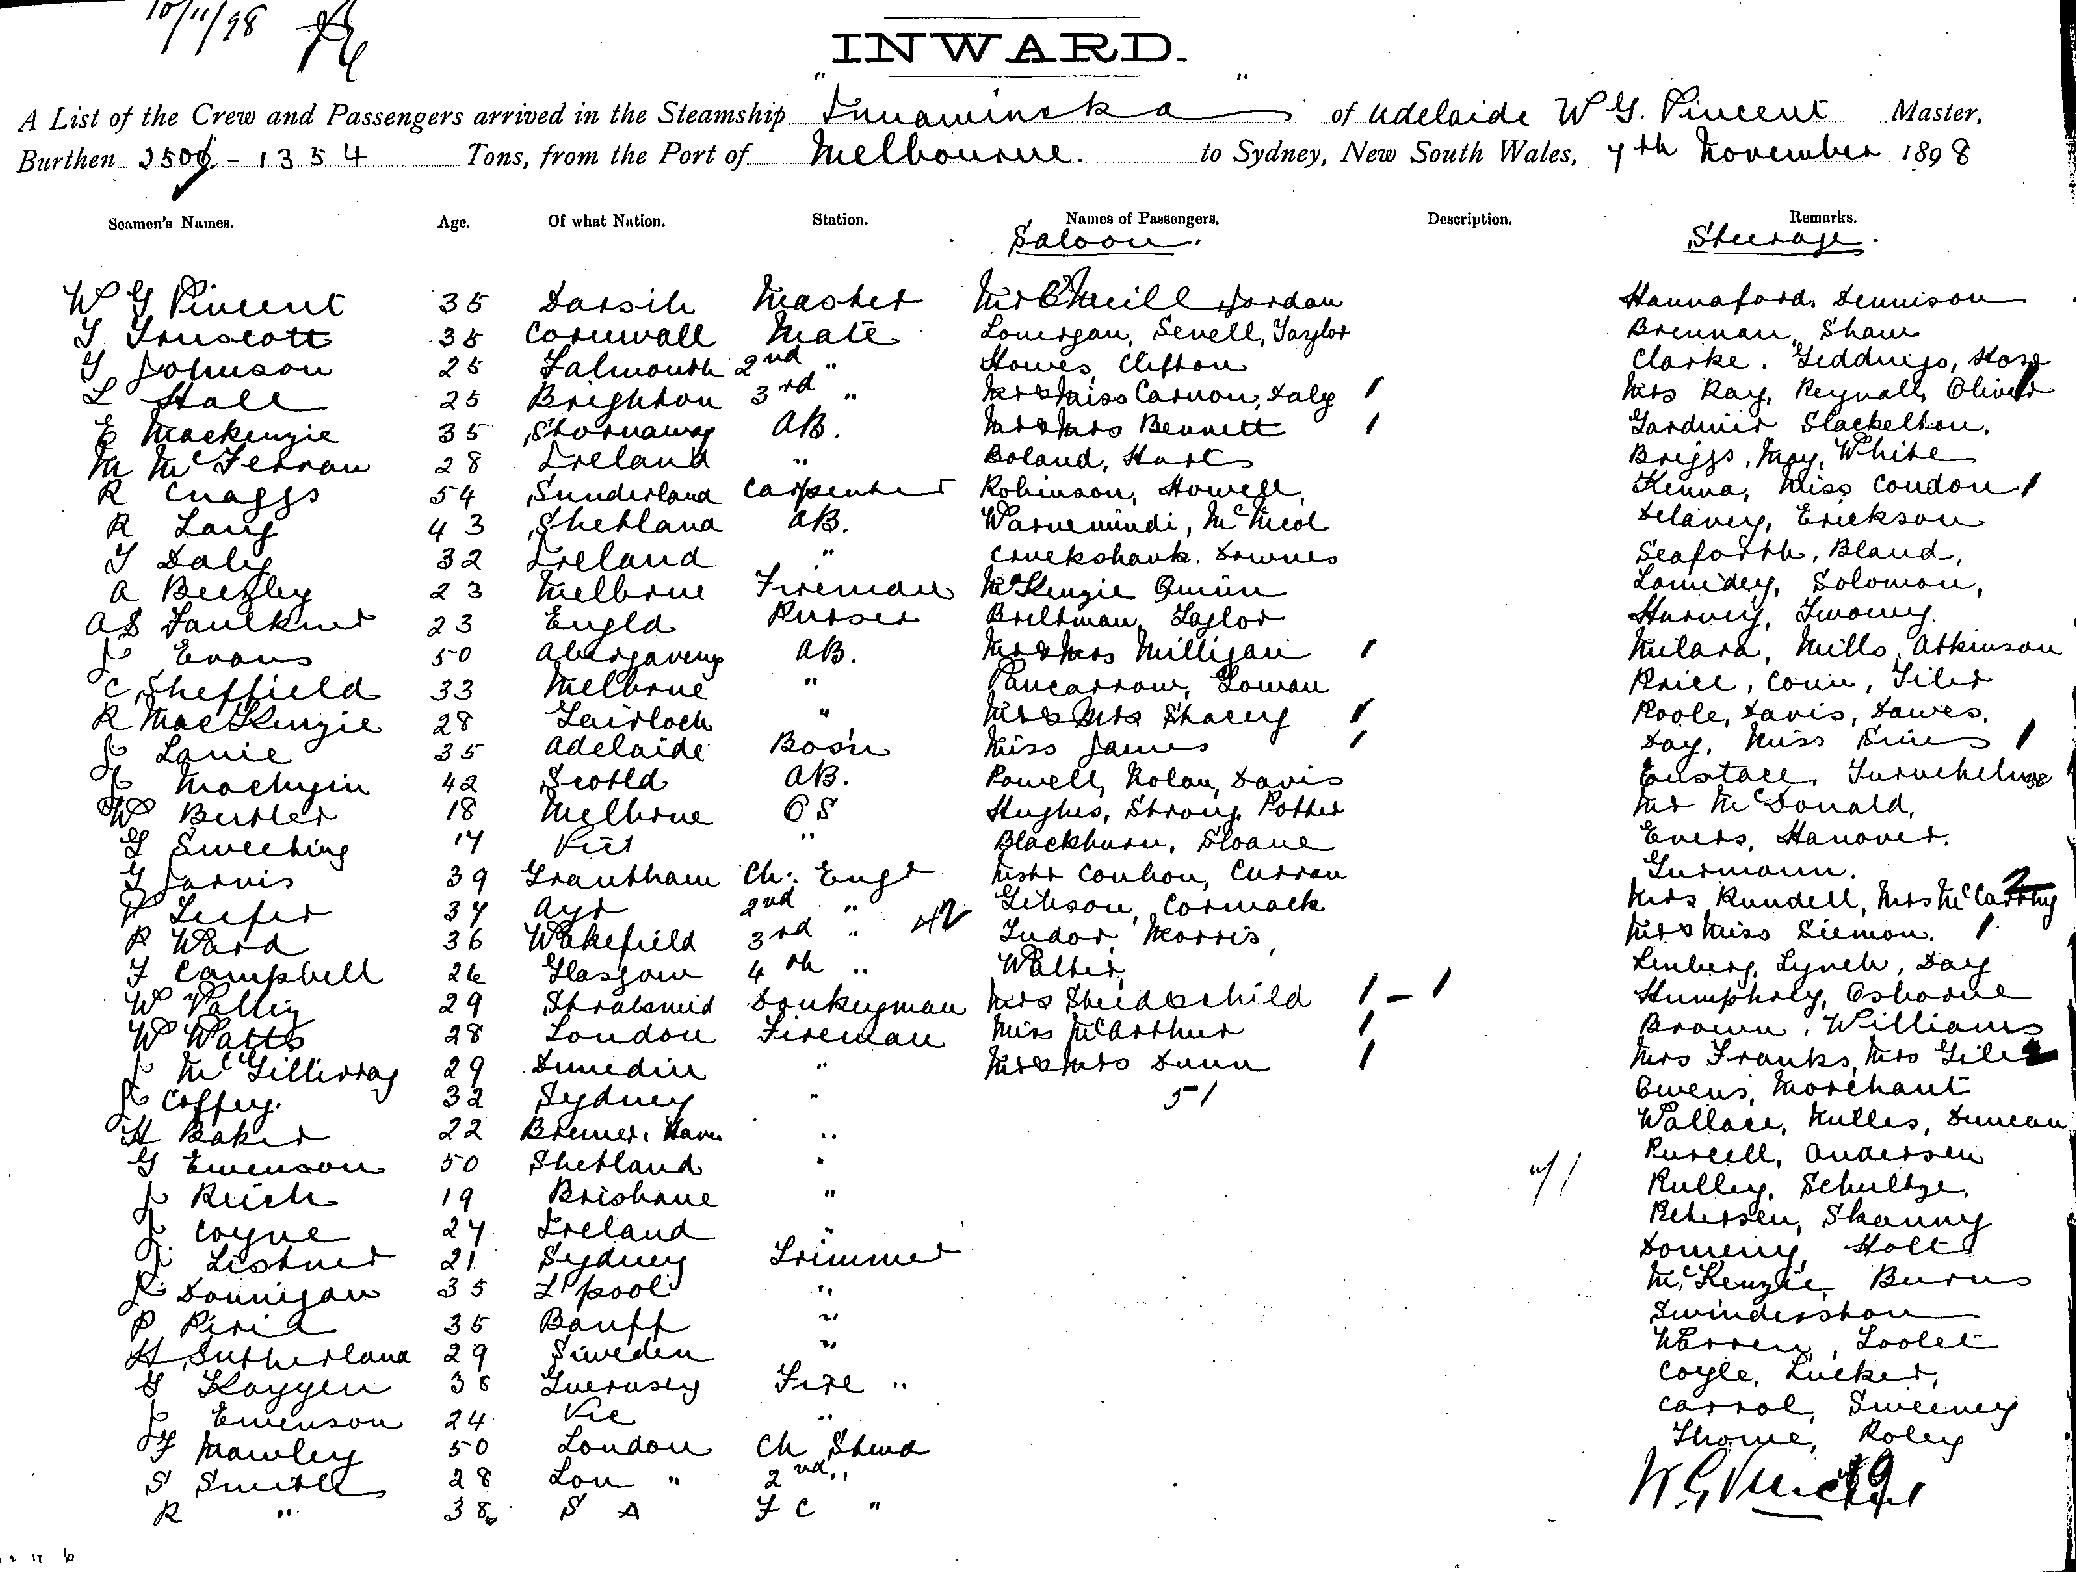 10/11/98
INWARD.
A List of the Crew and Passengers arrived in the Steamship "Innamincka" of Adelaide W G. Vincent Master,
Burthen 2500 - 1354 Tons, from the Port of Melbourne. to Sydney, New South Wales, 7th November 1898
Seamen's Names. Age. Of what Nation. Station. Names of Passengers. Description. Remarks.
Saloon. Steerage.
W G Vincent 35 Master Mr O'Neill Jordan Hannaford. Dennison
T Truscott 35 Cornwall Mate Lonergan, Sewell, Taylor Brennan, Shaw
T Johnson 25 Falmouth 2nd " Howes, Clifton Clarke. Giddings, Hose
L Hall 25 Brighton 3rd " Mr & Miss Carnon, Daly 1 Mrs Ray, Reynall, Oliver 1
E Mackenzie 35 Stornaway AB. Mr & Mrs Bennett 1 Gardiner Slackelton,
M McFerran 28 Ireland " Boland, Hart Briggs, May, White
R Cnaggs 54 Sunderland Carpenter Robinson, Howell, Kenna, Miss Condon 1
R Lang 43 Shetland AB. Warnemundi, McNicol Delaney, Erickson
T Daly 32 Ireland " Cruckshank. Downes Seaforth, Bland,
A Beezley 23 Melbrne Fireman McKenzie Quinn Solomon,
A S Faulkner 23 Engld Purser Breltman, Taylor Harvey, Twomey.
J Evans 50 Abergaveny AB. Mr & Mrs Milligan 1 Milara, Mills, Atkinson
C Sheffield 33 Melbrne " Pancarrow, Gowan Price, Conn, Tiler
R MacKenzie 28 Gairloch " Mr & Mrs Stacey 1 Poole, Davis, Dawes.
J Lanie 35 Adelaide Bos'n Miss James 1 Day, Miss Sims 1
J 42 Scotld AB. Powell, Nolan, Davis Eustace,
W Butler 18 Melbrne OS Hughes, Strong, Potter Mr McDonald,
G Sweeting 17 Vict " Blackburn, Sloane Evers, Hanover.
G Jarvis 39 Grantham Ch: Engr Coulson, Curran Gurmann.
P Leefer 37 Ayr 2nd " 42 Gibson, Cormack Mrs Rundell, Mrs McCarthy 2
R Ward 36 Wakefield 3rd " Tudor, Morris, Mr & Miss Siemon. 1
F Campbell 26 Glasgow 4th " Walter, Lenberg, Lynch, Day
W Pallig 29 Stralsund Donkeyman Mrs Sheidechild 1 - 1 Humphrey, Osborne
W Watts 28 London Fireman Miss McArthur 1 Brown, Williams
J McGillivray 29 Dunedin " Mr & Mrs Dunn 1 Mrs Franks, Mrs Giles 2
J Coffey. 32 Sydney " 51 Owens, Morchant
H Baker 22 Bremer. Haven " Wallace, Mulles, Duncan
G Ewenson 50 Shetland " Purcell, Andersen
J Reich 19 Brisbane " Pulley, Schultze,
J Coyne 27 Ireland " Petersen, Skanny
J. Listner 21 Sydney Trimmer Domeny, Holt
J. Donnigan 35 L'pool " McKenzie, Burns
P Pirie 35 Banff " Swindershon
H Sutherland 29 Sweden " Warren, Loolet
G Kaygen 38 Guernsey Fire " Coyle, Tucker,
J Ewenson 24 Vic " Carrol, Sweeney
F Mawley 50 London Ch Stewd Thorne, Roley
S Smith 28 Lon " 2nd "
R " 38 S A F C "
W G Vincent